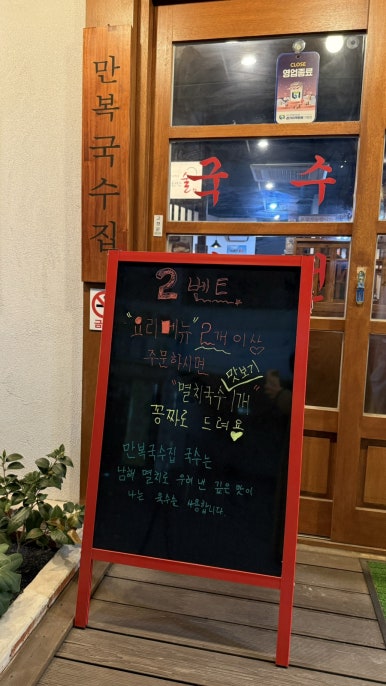 만복국수집
CLOSE
영업종료
술
국 수
전
2벤트
"요리메뉴" 2개 이상
주문하시면
맛보기
"멸치국수 1개"
꽁짜로 드려요
만복국수집 국수는
남해 멸치로 우려 낸 깊은 맛이
나는 육수를 사용합니다.
금